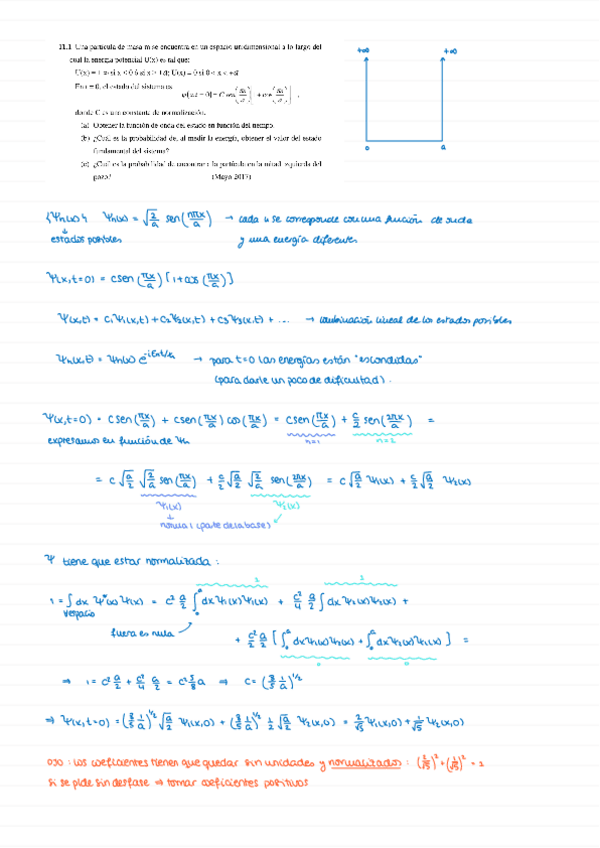 11.1 Una partícula de masa m se encuentra en un espacio unidimensional a lo largo del
cual la energía potencial U(x) es tal que:
U(x) = +∞ si x < 0 ó si x > +a; U(x) = 0 si 0 < x < +a
En t = 0, el estado del sistema es
donde C es una constante de normalización.
(a) Obtener la función de onda del estado en función del tiempo.
(b) ¿Cuál es la probabilidad de, al medir la energía, obtener el valor del estado
fundamental del sistema?
(c) ¿Cuál es la probabilidad de encontrar a la partícula en la mitad izquierda del
pozo? (Mayo 2017)
+∞ +∞
0 a
{Ψn(x)} Ψn(x) = √(2/a) sen(nπx/a) → cada n se corresponde con una función de onda
estados posibles y una energía diferente
Ψ(x,t=0) = c sen(πx/a) [1+cos(πx/a)]
Ψ(x,t) = c1Ψ1(x,t) + c2Ψ2(x,t) + c3Ψ3(x,t) + ... → combinación lineal de los estados posibles
Ψn(x,t) = Ψn(x) e^(-iEnt/ħ) → para t=0 las energías están "escondidas"
(para darle un poco de dificultad).
Ψ(x,t=0) = c sen(πx/a) + c sen(πx/a) cos(πx/a) = c sen(πx/a) + c/2 sen(2πx/a) =
n=1 n=2
expresamos en función de Ψn
= c √(a/2) √(2/a) sen(πx/a) + c/2 √(a/2) √(2/a) sen(2πx/a) = c √(a/2) Ψ1(x) + c/2 √(a/2) Ψ2(x)
Ψ1(x) Ψ2(x)
normal (parte de la base)
Ψ tiene que estar normalizada:
1 1
1 = ∫ dx Ψ*(x) Ψ(x) = c² a/2 ∫₀ᵃ dx Ψ1(x)Ψ1(x) + c²/4 a/2 ∫ dx Ψ2(x)Ψ2(x) +
fuera es nula
+ c²/2 a/2 [∫₀ᵃ dx Ψ1(x)Ψ2(x) + ∫₀ᵃ dx Ψ2(x)Ψ1(x)] =
0 0
⇒ 1 = c² a/2 + c²/4 a/2 = c² 5/8 a ⇒ c = (8/5 1/a)^1/2
⇒ Ψ(x,t=0) = (8/5 1/a)^1/2 √(a/2) Ψ1(x,0) + (8/5 1/a)^1/2 1/2 √(a/2) Ψ2(x,0) = 2/√5 Ψ1(x,0) + 1/√5 Ψ2(x,0)
OJO: los coeficientes tienen que quedar sin unidades y normalizados: (2/√5)² + (1/√5)² = 1
Si se pide sin desfase ⇒ tomar coeficientes positivos